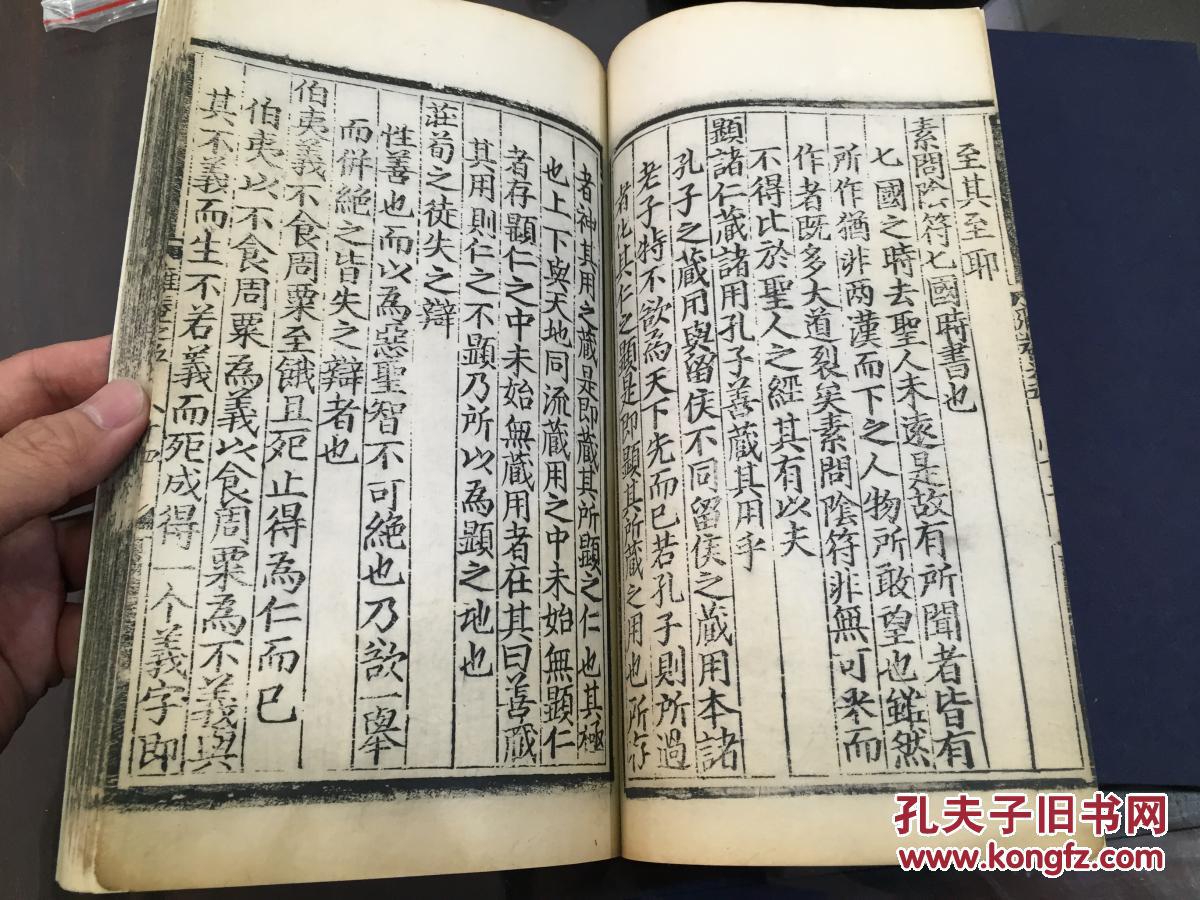 至其至耶
素問陰符七國時書也
七國之時去聖人未遠是故有所聞者皆有
所作猶非两漢而下之人物所敢望也雖然
作者既多大道裂矣素問陰符非無可采而
不得比於聖人之經其有以夫
顯諸仁蔵諸用孔子善蔵其用乎
孔子之蔵用與留侯不同留侯之蔵用本諸
老子特不欲為天下先而已若孔子則所過
者化其仁之顯是即顯其所蔵之用也所存
者神其用之蔵是即蔵其所顯之仁也其極
也上下與天地同流蔵用之中未始無顯仁
者存顯仁之中未始無蔵用者在其曰善蔵
其用則仁之不顯乃所以為顯之地也
莊荀之徒失之辯
性善也而以為惡聖智不可絶也乃欲一舉
而併絶之皆失之辯者也
伯夷義不食周粟至餓且死止得為仁而已
伯夷以不食周粟為義以食周粟為不義與
其不義而生不若義而死成得一个義字即
孔夫子旧书网
www.kongfz.com